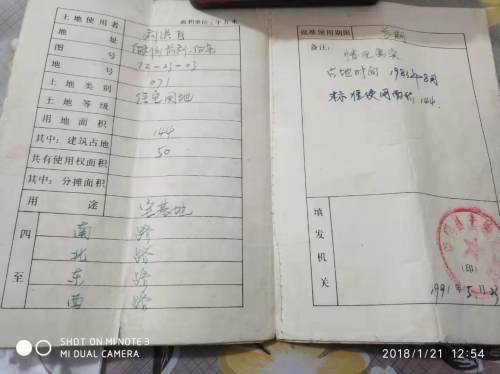 面积单位：平方米
土地使用者
地 址
图 号 92-23-03
地 号 031
土地类别 住宅用地
土地等级
用地面积 144
其中：建筑占地 50
共有使用权面积
其中：分摊面积
用 途 宅基地
四至
南 路
北 路
东 路
西 路
批准使用期限 长期
备注：
情况属实
占地时间 1982年8月
标准使用面积 144.
填发机关
（印）
1991年5.11.
SHOT ON MI NOTE 3
MI DUAL CAMERA
2018/1/21 12:54